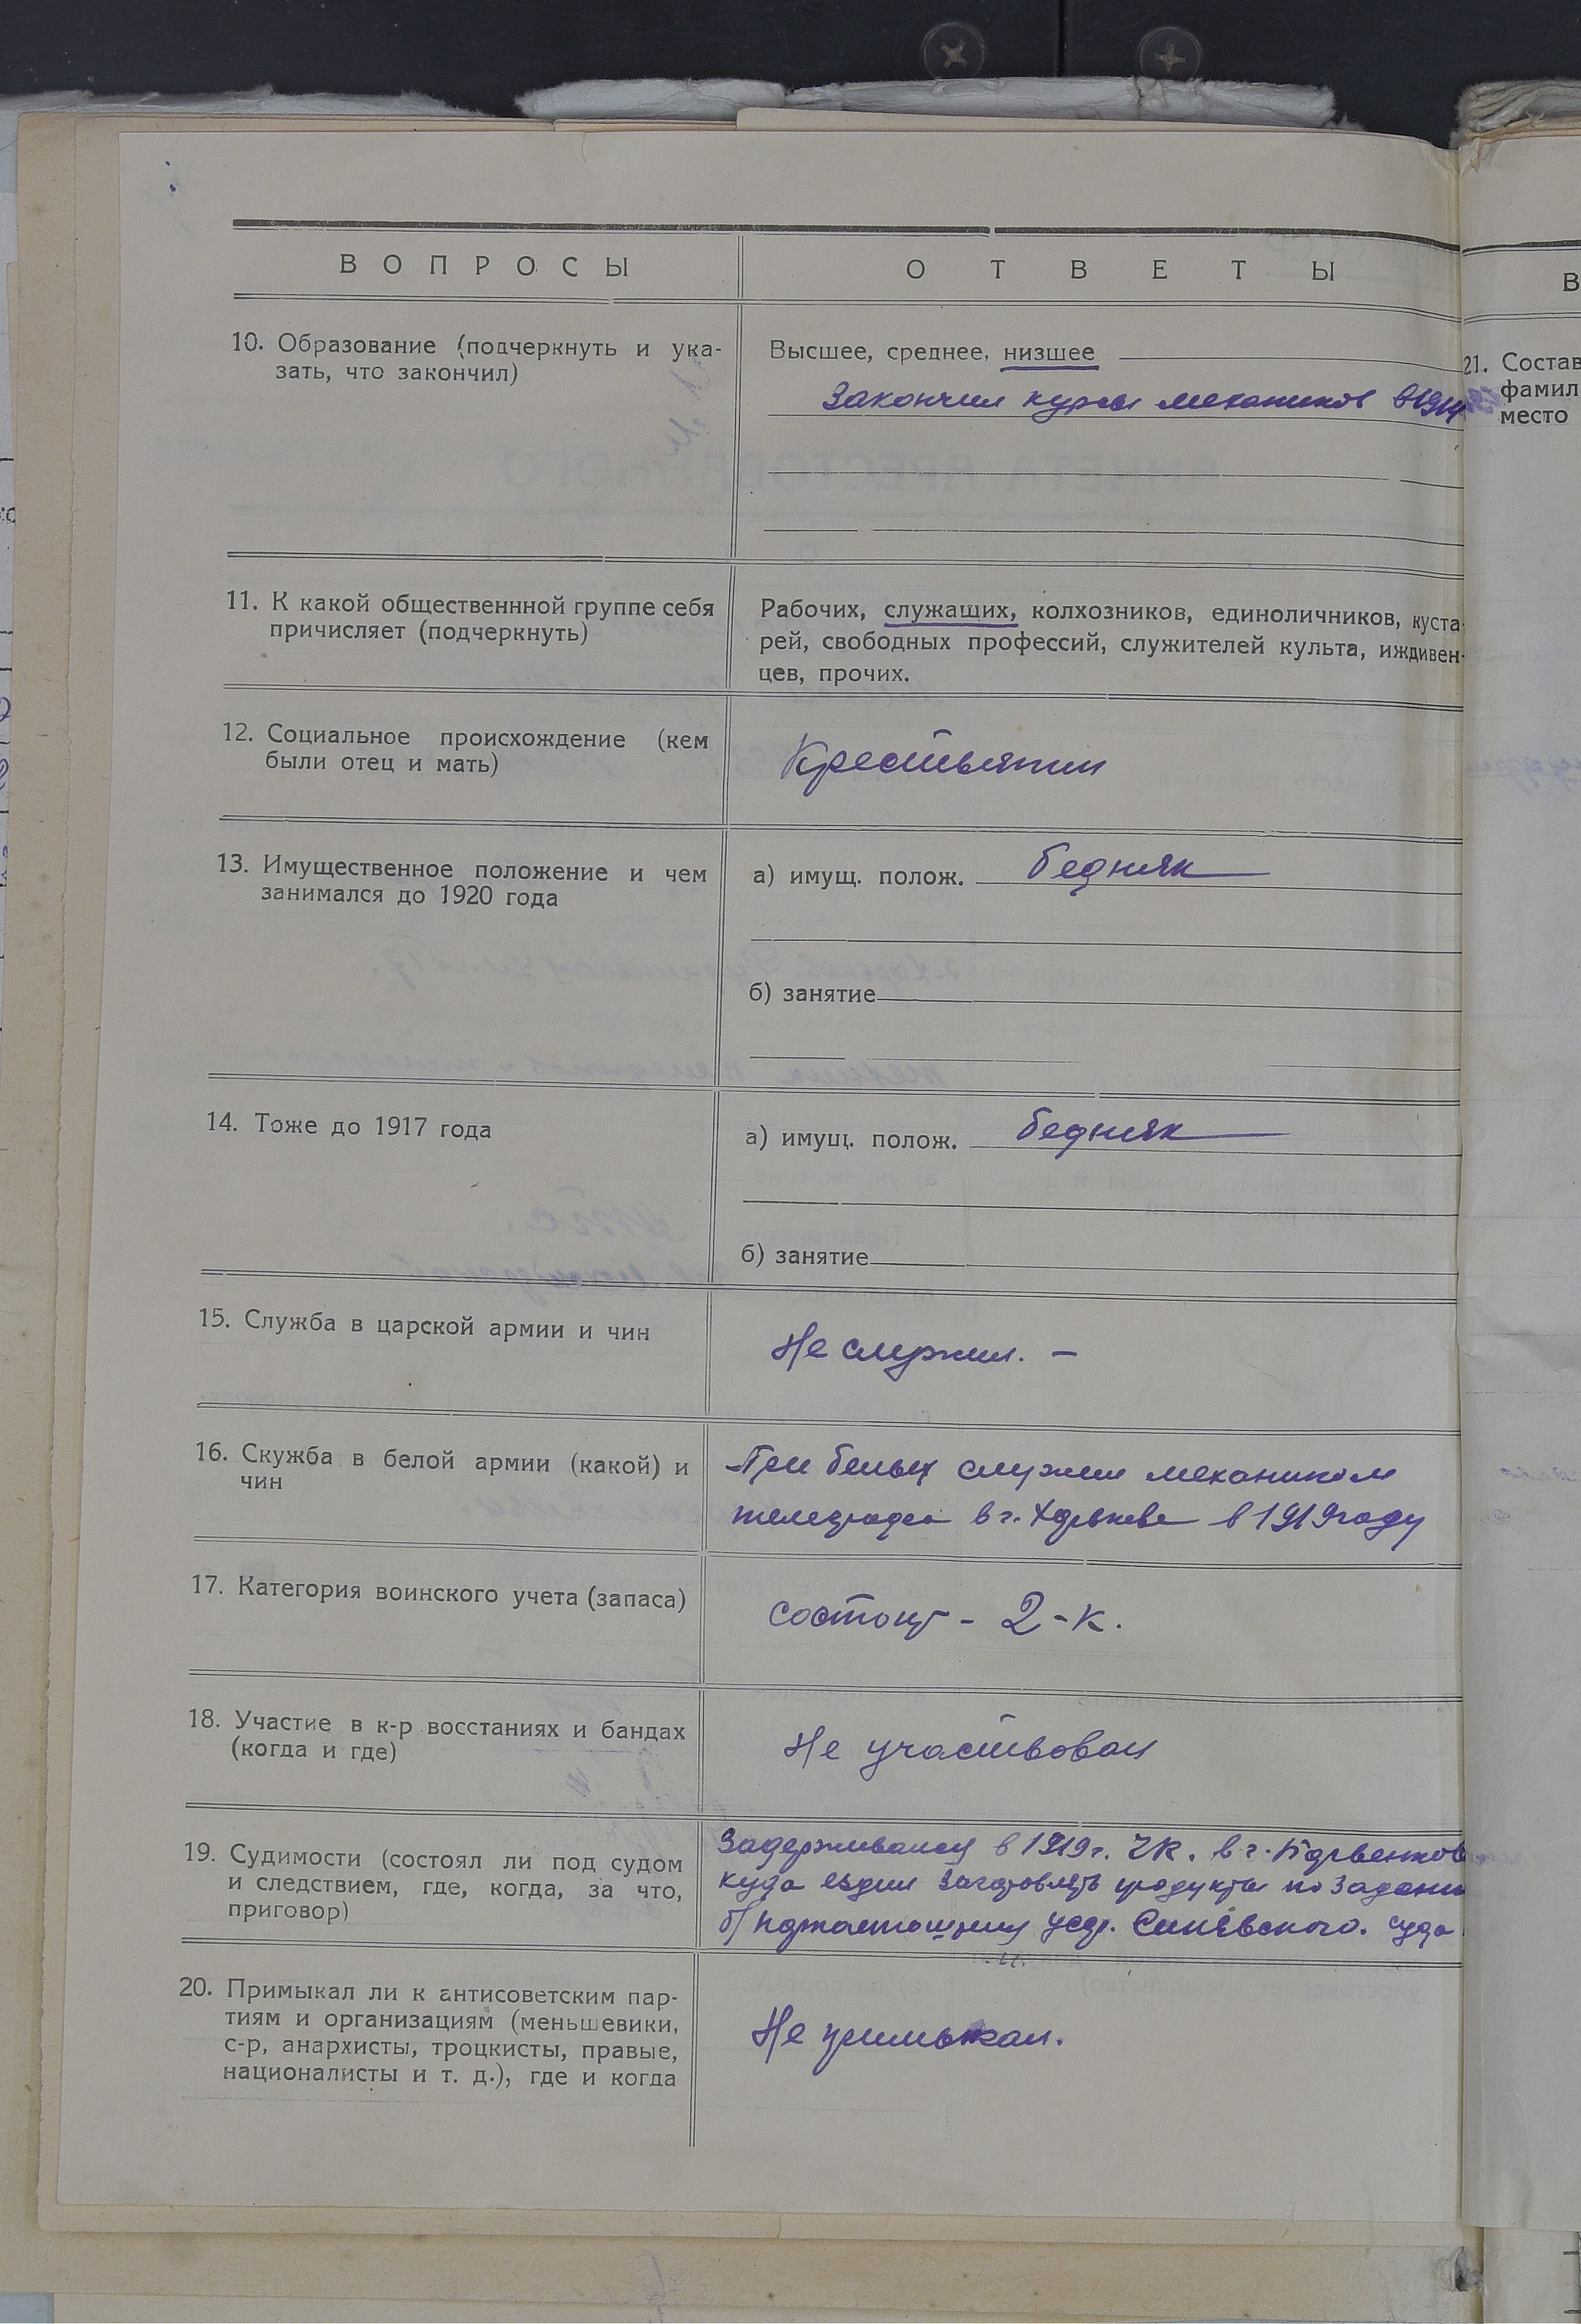 ВОПРОСЫ
ОТВЕТЫ
10. Образование (подчеркнуть и ука-
зать, что закончил)
Высшее, среднее, низшее
Закончил курсы механиков в 1914
11. К какой общественнной группе себя
причисляет (подчеркнуть)
Рабочих, служащих, колхозников, единоличников, куста-
рей, свободных профессий, служителей культа, иждивен-
цев, прочих.
12. Социальное происхождение (кем
были отец и мать)
Крестьянин
13. Имущественное положение и чем
занимался до 1920 года
а) имущ. полож. бедняк
б) занятие
14. Тоже до 1917 года
а) имущ. полож. бедняк
б) занятие
15. Служба в царской армии и чин
Не служил. —
16. Скужба в белой армии (какой) и
чин
При белых служил механиком
телеграфа в г. Харькове в 1919 году
17. Категория воинского учета (запаса)
состоит - 2-к.
18. Участие в к-р восстаниях и бандах
(когда и где)
Не участвовал
19. Судимости (состоял ли под судом
и следствием, где, когда, за что,
приговор)
Задерживался в 1919 г. ЧК. в г. Барвенков
куда ездил заготовлять продукты по задани
суда
20. Примыкал ли к антисоветским пар-
тиям и организациям (меньшевики,
с-р, анархисты, троцкисты, правые,
националисты и т. д.), где и когда
Не примыкал.
В
21. Состав
фамил
место